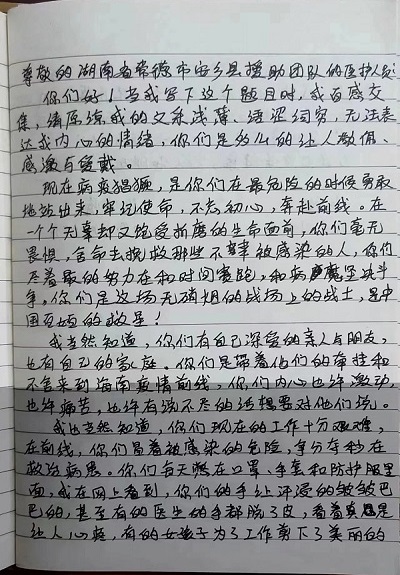 尊敬的湖南省常德市安乡县援助团队的医护人员:
你们好！当我写下这个题目时,我百感交
集,请原谅我的文采浅薄、语涩词穷,无法表
达我内心的情绪,你们是多么的让人敬佩、
感激与爱戴。
现在病疫猖獗,是你们在最危险的时候勇敢
地站出来,牢记使命,不忘初心,奔赴前线。在
一个个无辜却又饱受折磨的生命面前,你们毫无
畏惧,舍命去挽救那些不幸被感染的人,你们
尽着最的努力在和时间赛跑,和病魔坚决斗
争。你们是这场无硝烟的战场上的战士,是中
国百姓的救星！
我当然知道,你们有自己深爱的亲人与朋友,
也有自己的家庭。你们是带着他们的牵挂和
不舍来到海南疫情前线,你们内心也许激动,
也许痛苦,也许有说不尽的话想要对他们说。
我也当然知道,你们现在的工作十分艰难,
在前线,你们冒着被感染的危险,争分夺秒在
救治病患。你们每天憋在口罩、手套和防护服里
面,我在网上看到,你们的手让汗浸的皱皱巴
巴的,甚至有的医生的手都脱了皮,看着真是
让人心疼,有的女孩子为了工作剪下了美丽的